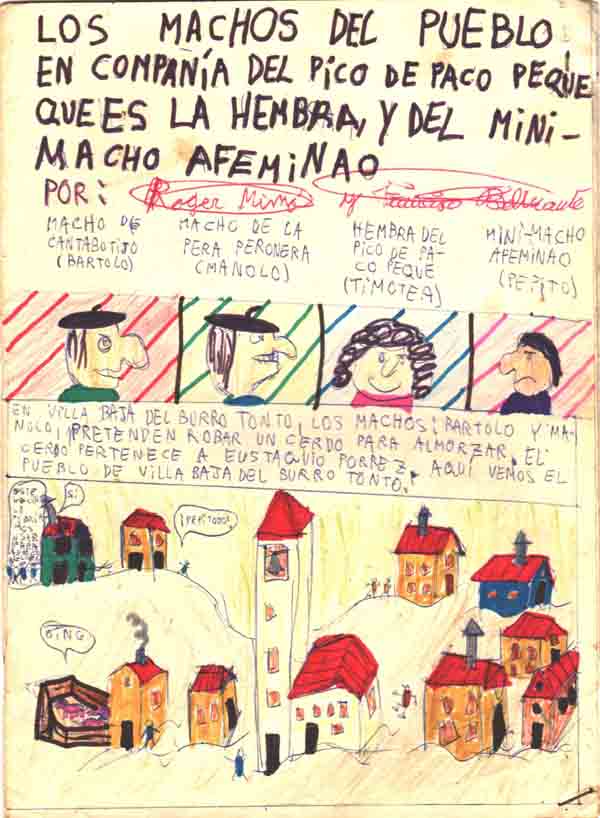 LOS MACHOS DEL PUEBLO
EN COMPAÑÍA DEL PICO DE PACO PEQUE
QUE ES LA HEMBRA, Y DEL MINI-
MACHO AFEMINAO
POR: Roger Mimó y
MACHO DE CANTABOTIJO (BARTOLO)
MACHO DE LA PERA PERONERA (MANOLO)
HEMBRA DEL PICO DE PACO PEQUE (TIMOTEA)
MINI-MACHO AFEMINAO (PEPITO)
EN VILLA BAJA DEL BURRO TONTO, LOS MACHOS: BARTOLO Y MA-
NOLO, PRETENDEN ROBAR UN CERDO PARA ALMORZAR. EL
CERDO PERTENECE A EUSTAQUIO PORREZ. AQUÍ VEMOS EL
PUEBLO DE VILLA BAJA DEL BURRO TONTO.
SI
¡PEPITOOO!
OING